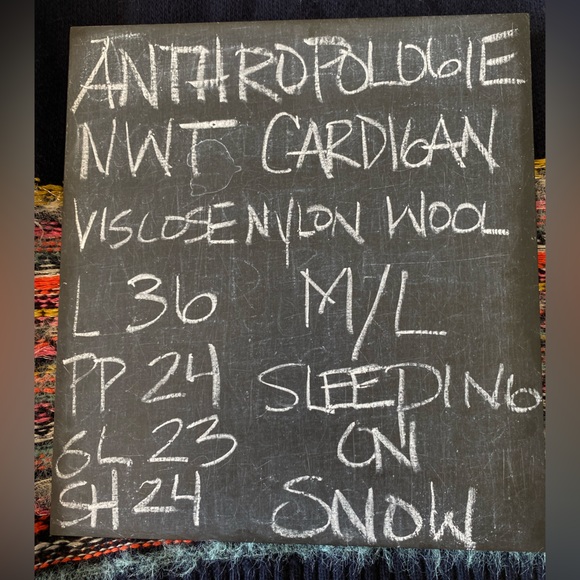 ANTHROPOLOGIE
NWT CARDIGAN
VISCOSE NYLON WOOL
L 36 M/L
PP 24 SLEEPING
SL 23 ON
SH 24 SNOW